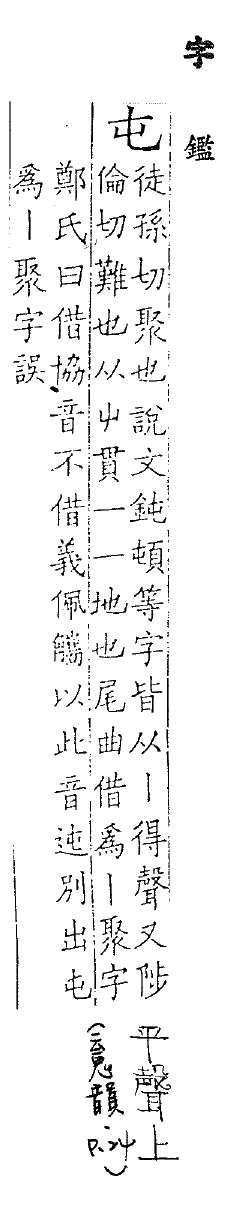 字鑑
屯
徒孫切聚也說文鈍頓等字皆从丨得聲又陟
倫切難也从屮貫一一地也尾曲借為丨聚字
鄭氏曰借協音不借義佩觿以此音迍別出屯
為丨聚字誤
平聲上
(魂韻
P.24)